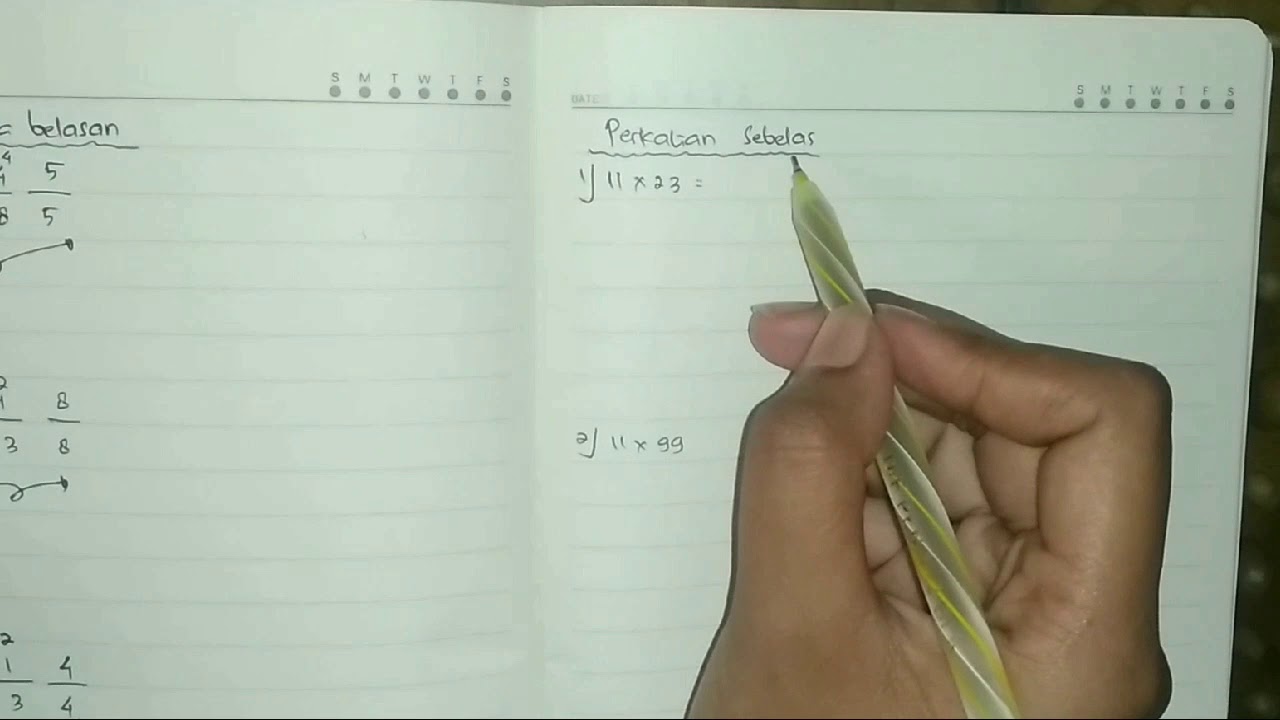 S M T W T F S
= belasan
4
4 5
8 5
2
1 8
3 8
2
1 4
3 4
DATE S M T W T F S
Perkalian Sebelas
1) 11 x 23 =
2) 11 x 99